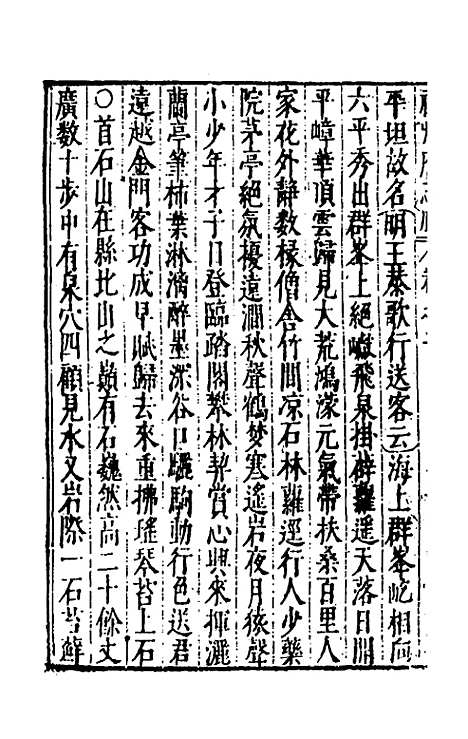 平坦故名明王恭歌行送客云海上群峯屹相向
六平秀出群峯上絕𪩘飛泉掛薜蘿遥天落日開
平嶂華頂雲歸見大荒鴻濛元氣帶扶桑百里人
家花外靜数椽僧舎竹間凉石林蘿逕行人少藥
院茅亭絕氛擾遠澗秋聲鶴夢寒遙岩夜月猿聲
小少年才子日登臨踏閣攀林契賞心興來揮灑
蘭亭筆柿葉淋漓醉墨深谷口驪駒動行色送君
遠越金門客功成早賦歸去來重拂瑤琴苔上石
○首石山在縣北山之巔有石巍然高二十餘丈
廣数十步中有泉穴四顧見水又岩際一石苔蘚